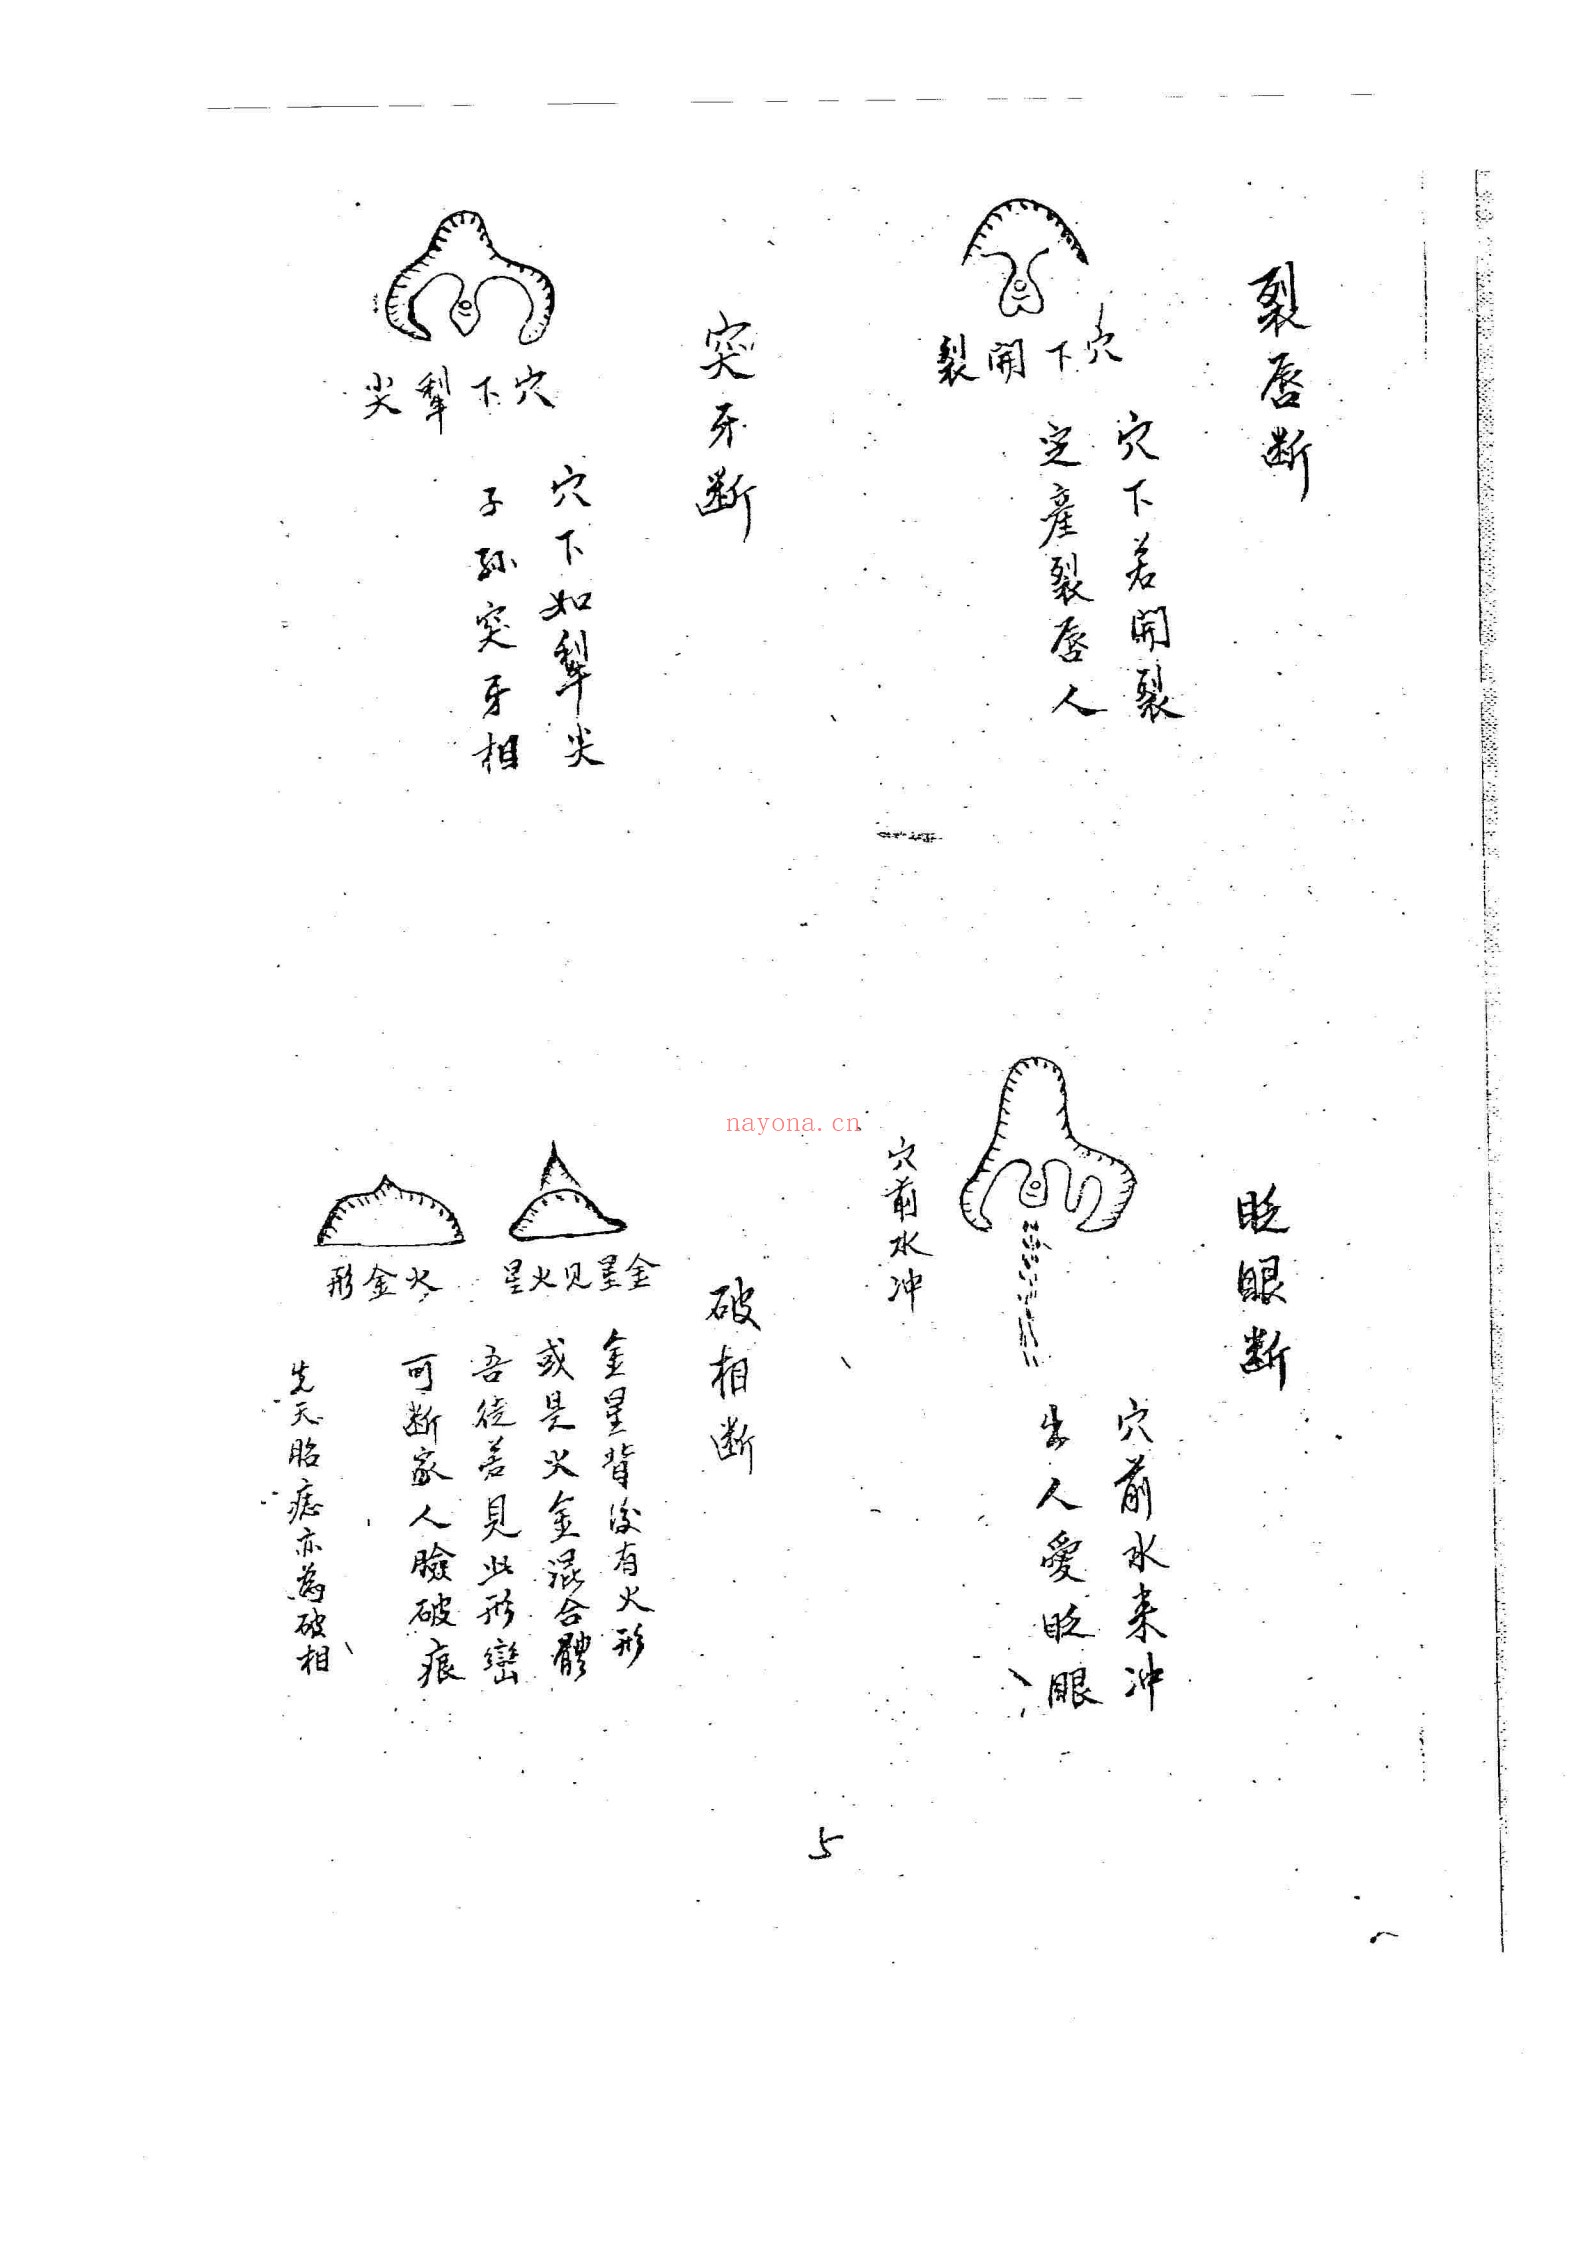 裂唇断
穴下開裂
穴下若開裂
定產裂唇人
突牙断
穴下犁尖
穴下如犁尖
子孫突牙相
眨眼断
穴前水冲
穴前水来冲
出人愛眨眼
破相断
金星见火星
火金形
金星背後有火形
或是火金混合體
吾徒若見此形巒
可断家人臉破痕
先天胎痣亦為破相
nayona.cn
5